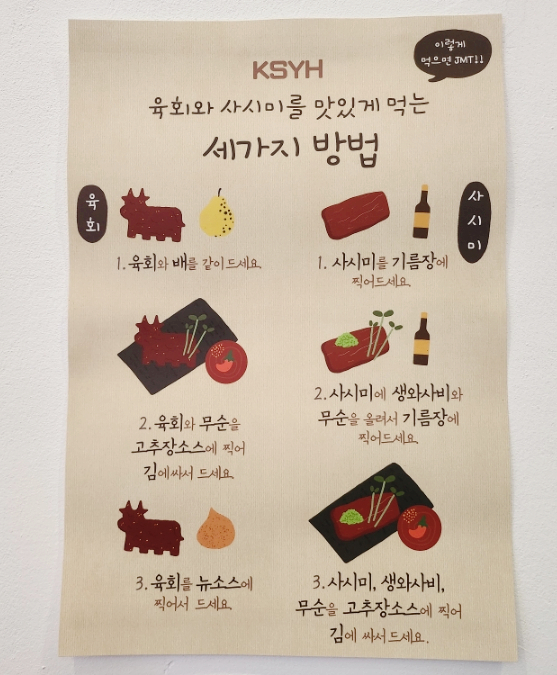 이렇게
먹으면 JMT!!
KSYH
육회와 사시미를 맛있게 먹는
세가지 방법
육
회
1. 육회와 배를 같이 드세요.
2. 육회와 무순을
고추장소스에 찍어
김에싸서 드세요.
3. 육회를 뉴소스에
찍어서 드세요.
사
시
미
1. 사시미를 기름장에
찍어드세요.
2. 사시미에 생와사비와
무순을 올려서 기름장에
찍어드세요.
3. 사시미, 생와사비,
무순을 고추장소스에 찍어
김에 싸서 드세요.